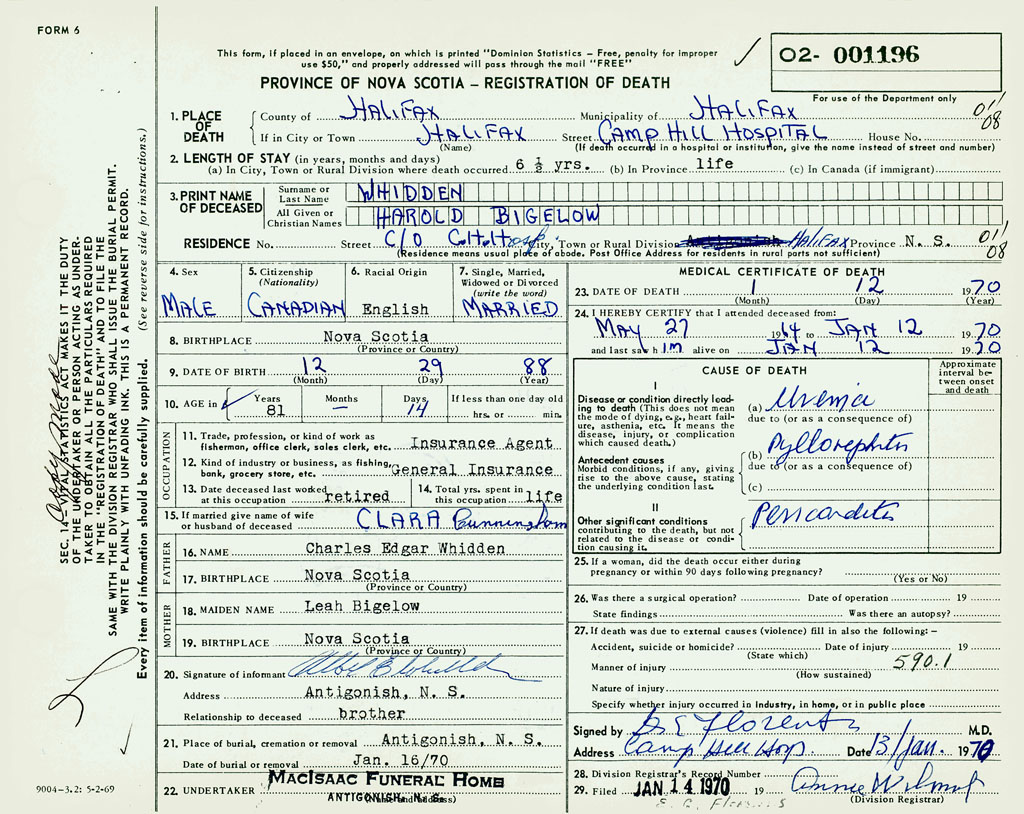 FORM 6
This form, if placed in an envelope, on which is printed "Dominion Statistics – Free, penalty for improper
use $50," and properly addressed will pass through the mail "FREE"
02- 001196
PROVINCE OF NOVA SCOTIA – REGISTRATION OF DEATH
For use of the Department only
1. PLACE OF DEATH
County of HALIFAX Municipality of HALIFAX 01/08
If in City or Town HALIFAX Street CAMP HILL HOSPITAL House No.
(Name) (If death occurred in a hospital or institution, give the name instead of street and number)
2. LENGTH OF STAY (in years, months and days)
(a) In City, Town or Rural Division where death occurred 6 ½ yrs. (b) In Province life (c) In Canada (if immigrant)
3. PRINT NAME OF DECEASED
Surname or Last Name WHIDDEN
All Given or Christian Names HAROLD BIGELOW
RESIDENCE No. Street C/O C.H. Hosp City, Town or Rural Division Antigonish HALIFAX Province N. S. 01/08
(Residence means usual place of abode. Post Office Address for residents in rural parts not sufficient)
4. Sex MALE
5. Citizenship (Nationality) CANADIAN
6. Racial Origin English
7. Single, Married, Widowed or Divorced (write the word) MARRIED
8. BIRTHPLACE Nova Scotia
(Province or Country)
9. DATE OF BIRTH 12 29 88
(Month) (Day) (Year)
10. AGE in Years 81 Months — Days 14 If less than one day old hrs. or min.
OCCUPATION
11. Trade, profession, or kind of work as fisherman, office clerk, sales clerk, etc. Insurance Agent
12. Kind of industry or business, as fishing, bank, grocery store, etc. General Insurance
13. Date deceased last worked at this occupation retired
14. Total yrs. spent in this occupation life
15. If married give name of wife or husband of deceased CLARA Cunningham
FATHER
16. NAME Charles Edgar Whidden
17. BIRTHPLACE Nova Scotia
(Province or Country)
MOTHER
18. MAIDEN NAME Leah Bigelow
19. BIRTHPLACE Nova Scotia
(Province or Country)
20. Signature of informant
Address Antigonish, N. S.
Relationship to deceased brother
21. Place of burial, cremation or removal Antigonish, N. S.
Date of burial or removal Jan. 16/70
22. UNDERTAKER MACISAAC FUNERAL HOME
ANTIGONISH, N. S.
(Name and address)
MEDICAL CERTIFICATE OF DEATH
23. DATE OF DEATH 1 12 1970
(Month) (Day) (Year)
24. I HEREBY CERTIFY that I attended deceased from:
MAY 27 1964 to JAN 12 1970
and last saw him alive on JAN 12 1970
CAUSE OF DEATH
Approximate interval between onset and death
I
Disease or condition directly leading to death (This does not mean the mode of dying, e.g., heart failure, asthenia, etc. It means the disease, injury, or complication which caused death.)
(a) Uremia
due to (or as a consequence of)
Antecedent causes
Morbid conditions, if any, giving rise to the above cause, stating the underlying condition last.
(b) Pyllonephitis
due to (or as a consequence of)
(c)
II
Other significant conditions contributing to the death, but not related to the disease or condition causing it.
Pericarditis
25. If a woman, did the death occur either during pregnancy or within 90 days following pregnancy?
(Yes or No)
26. Was there a surgical operation? Date of operation 19
State findings Was there an autopsy?
27. If death was due to external causes (violence) fill in also the following: –
Accident, suicide or homicide? Date of injury 19
(State which)
Manner of injury 590.1
(How sustained)
Nature of injury
Specify whether injury occurred in industry, in home, or in public place
Signed by M.D.
Address Camp Hill Hosp. Date 13/Jan. 1970
28. Division Registrar's Record Number
29. Filed JAN 14 1970 19
(Division Registrar)
SEC. 14 – VITAL STATISTICS ACT MAKES IT THE DUTY
OF THE UNDERTAKER OR PERSON ACTING AS UNDER-
TAKER TO OBTAIN ALL THE PARTICULARS REQUIRED
IN THE "REGISTRATION OF DEATH" AND TO FILE THE
SAME WITH THE DIVISION REGISTRAR WHO SHALL ISSUE THE BURIAL PERMIT.
WRITE PLAINLY WITH UNFADING INK. THIS IS A PERMANENT RECORD.
Every item of information should be carefully supplied. (See reverse side for instructions.)
9004-3.2: 5-2-69